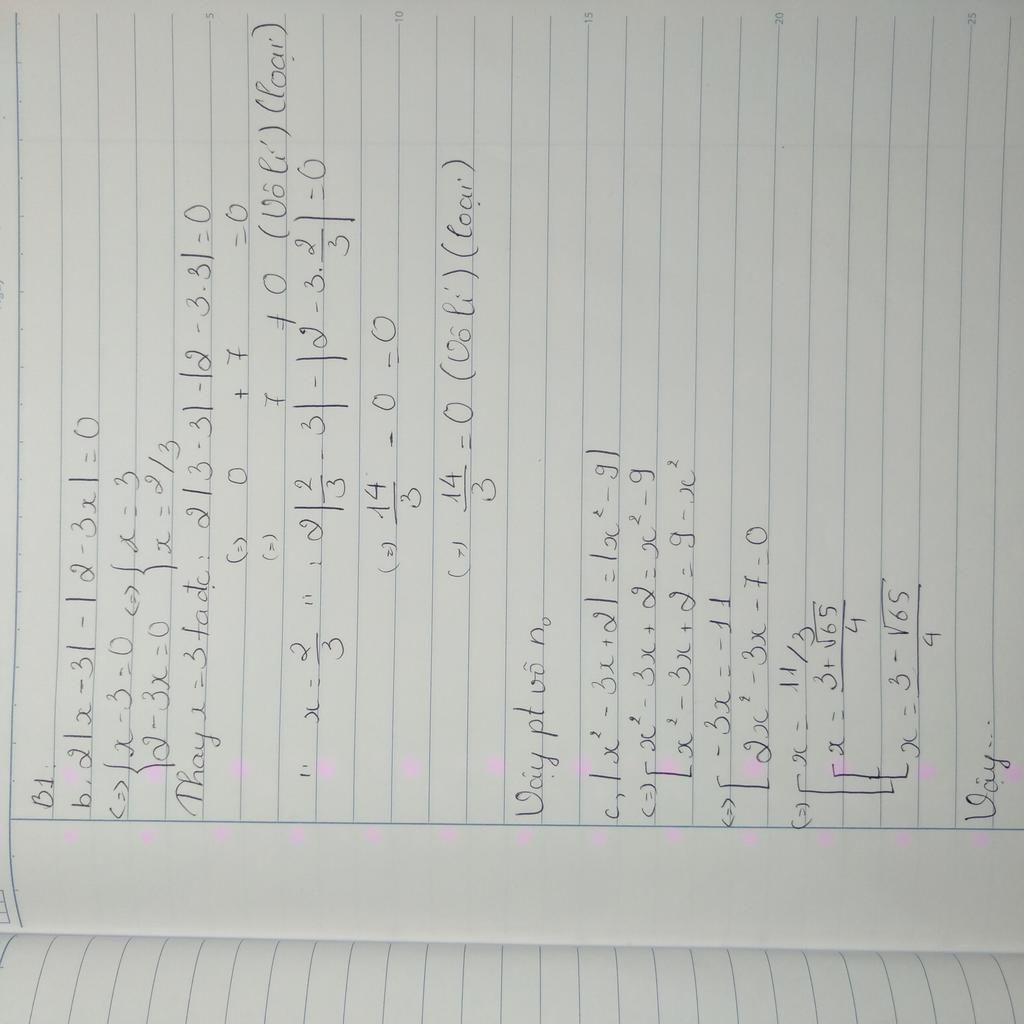 B1
b, 2|x - 3| - |2 - 3x| = 0
(=) { x - 3 = 0 (=) { x = 3
{ 2 - 3x = 0 { x = 2/3
Thay x = 3 ta đc : 2|3 - 3| - |2 - 3.3| = 0
(=) 0 + 7 = 0
(=) 7 ≠ 0 (Vô lí) (loại)
" x = 2/3 " : 2|2/3 - 3| - |2 - 3.2/3| = 0
(=) 14/3 - 0 = 0
(=) 14/3 = 0 (Vô lí) (loại)
Vậy pt vô no
c, |x² - 3x + 2| = |x² - 9|
(=) [ x² - 3x + 2 = x² - 9
[ x² - 3x + 2 = 9 - x²
(=) [ - 3x = - 11
[ 2x² - 3x - 7 = 0
(=) [ x = 11/3
[ [ x = 3 + √65 / 4
[ x = 3 - √65 / 4
Vậy...
5
10
15
20
25